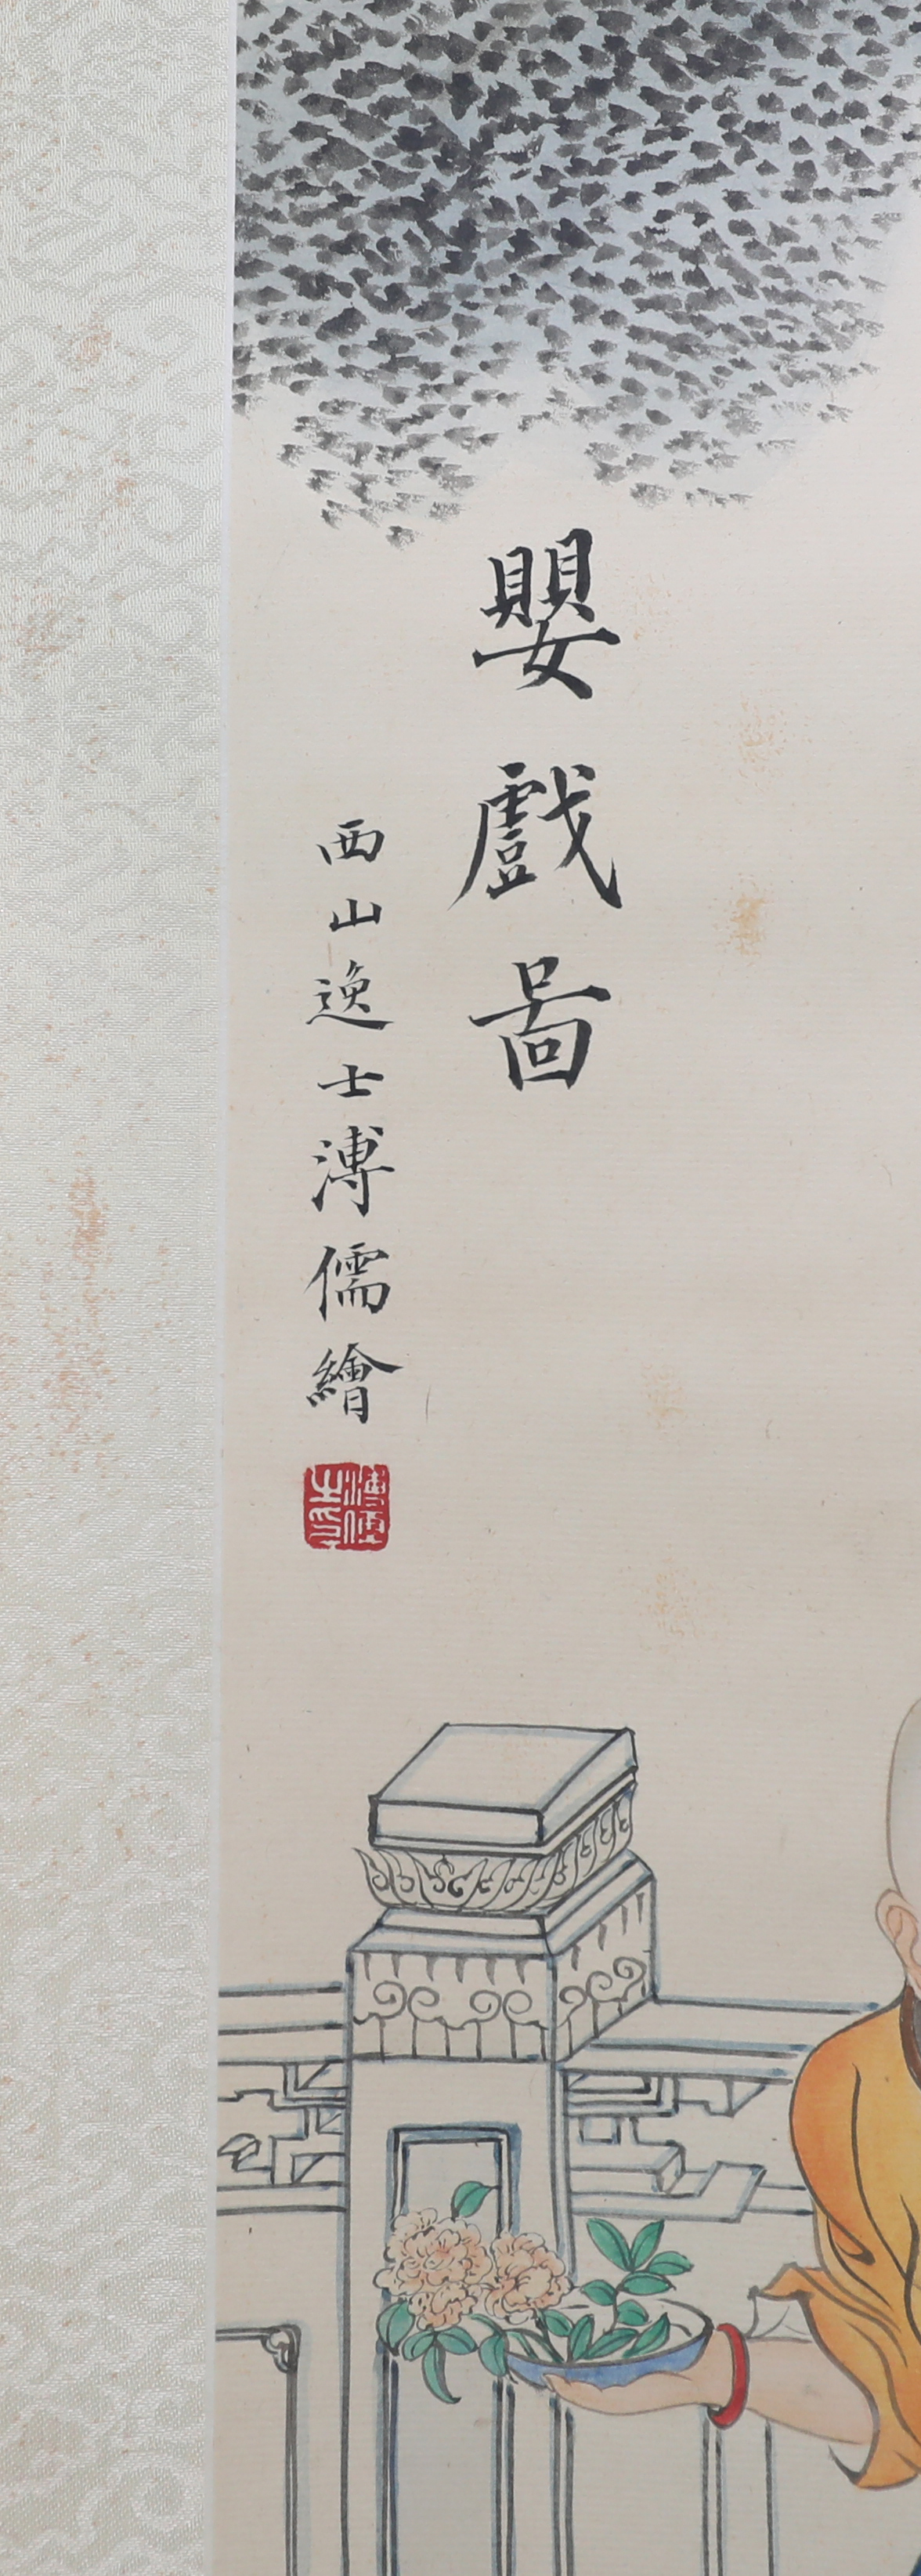 嬰戲啚
西山逸士溥儒繪
溥儒之印